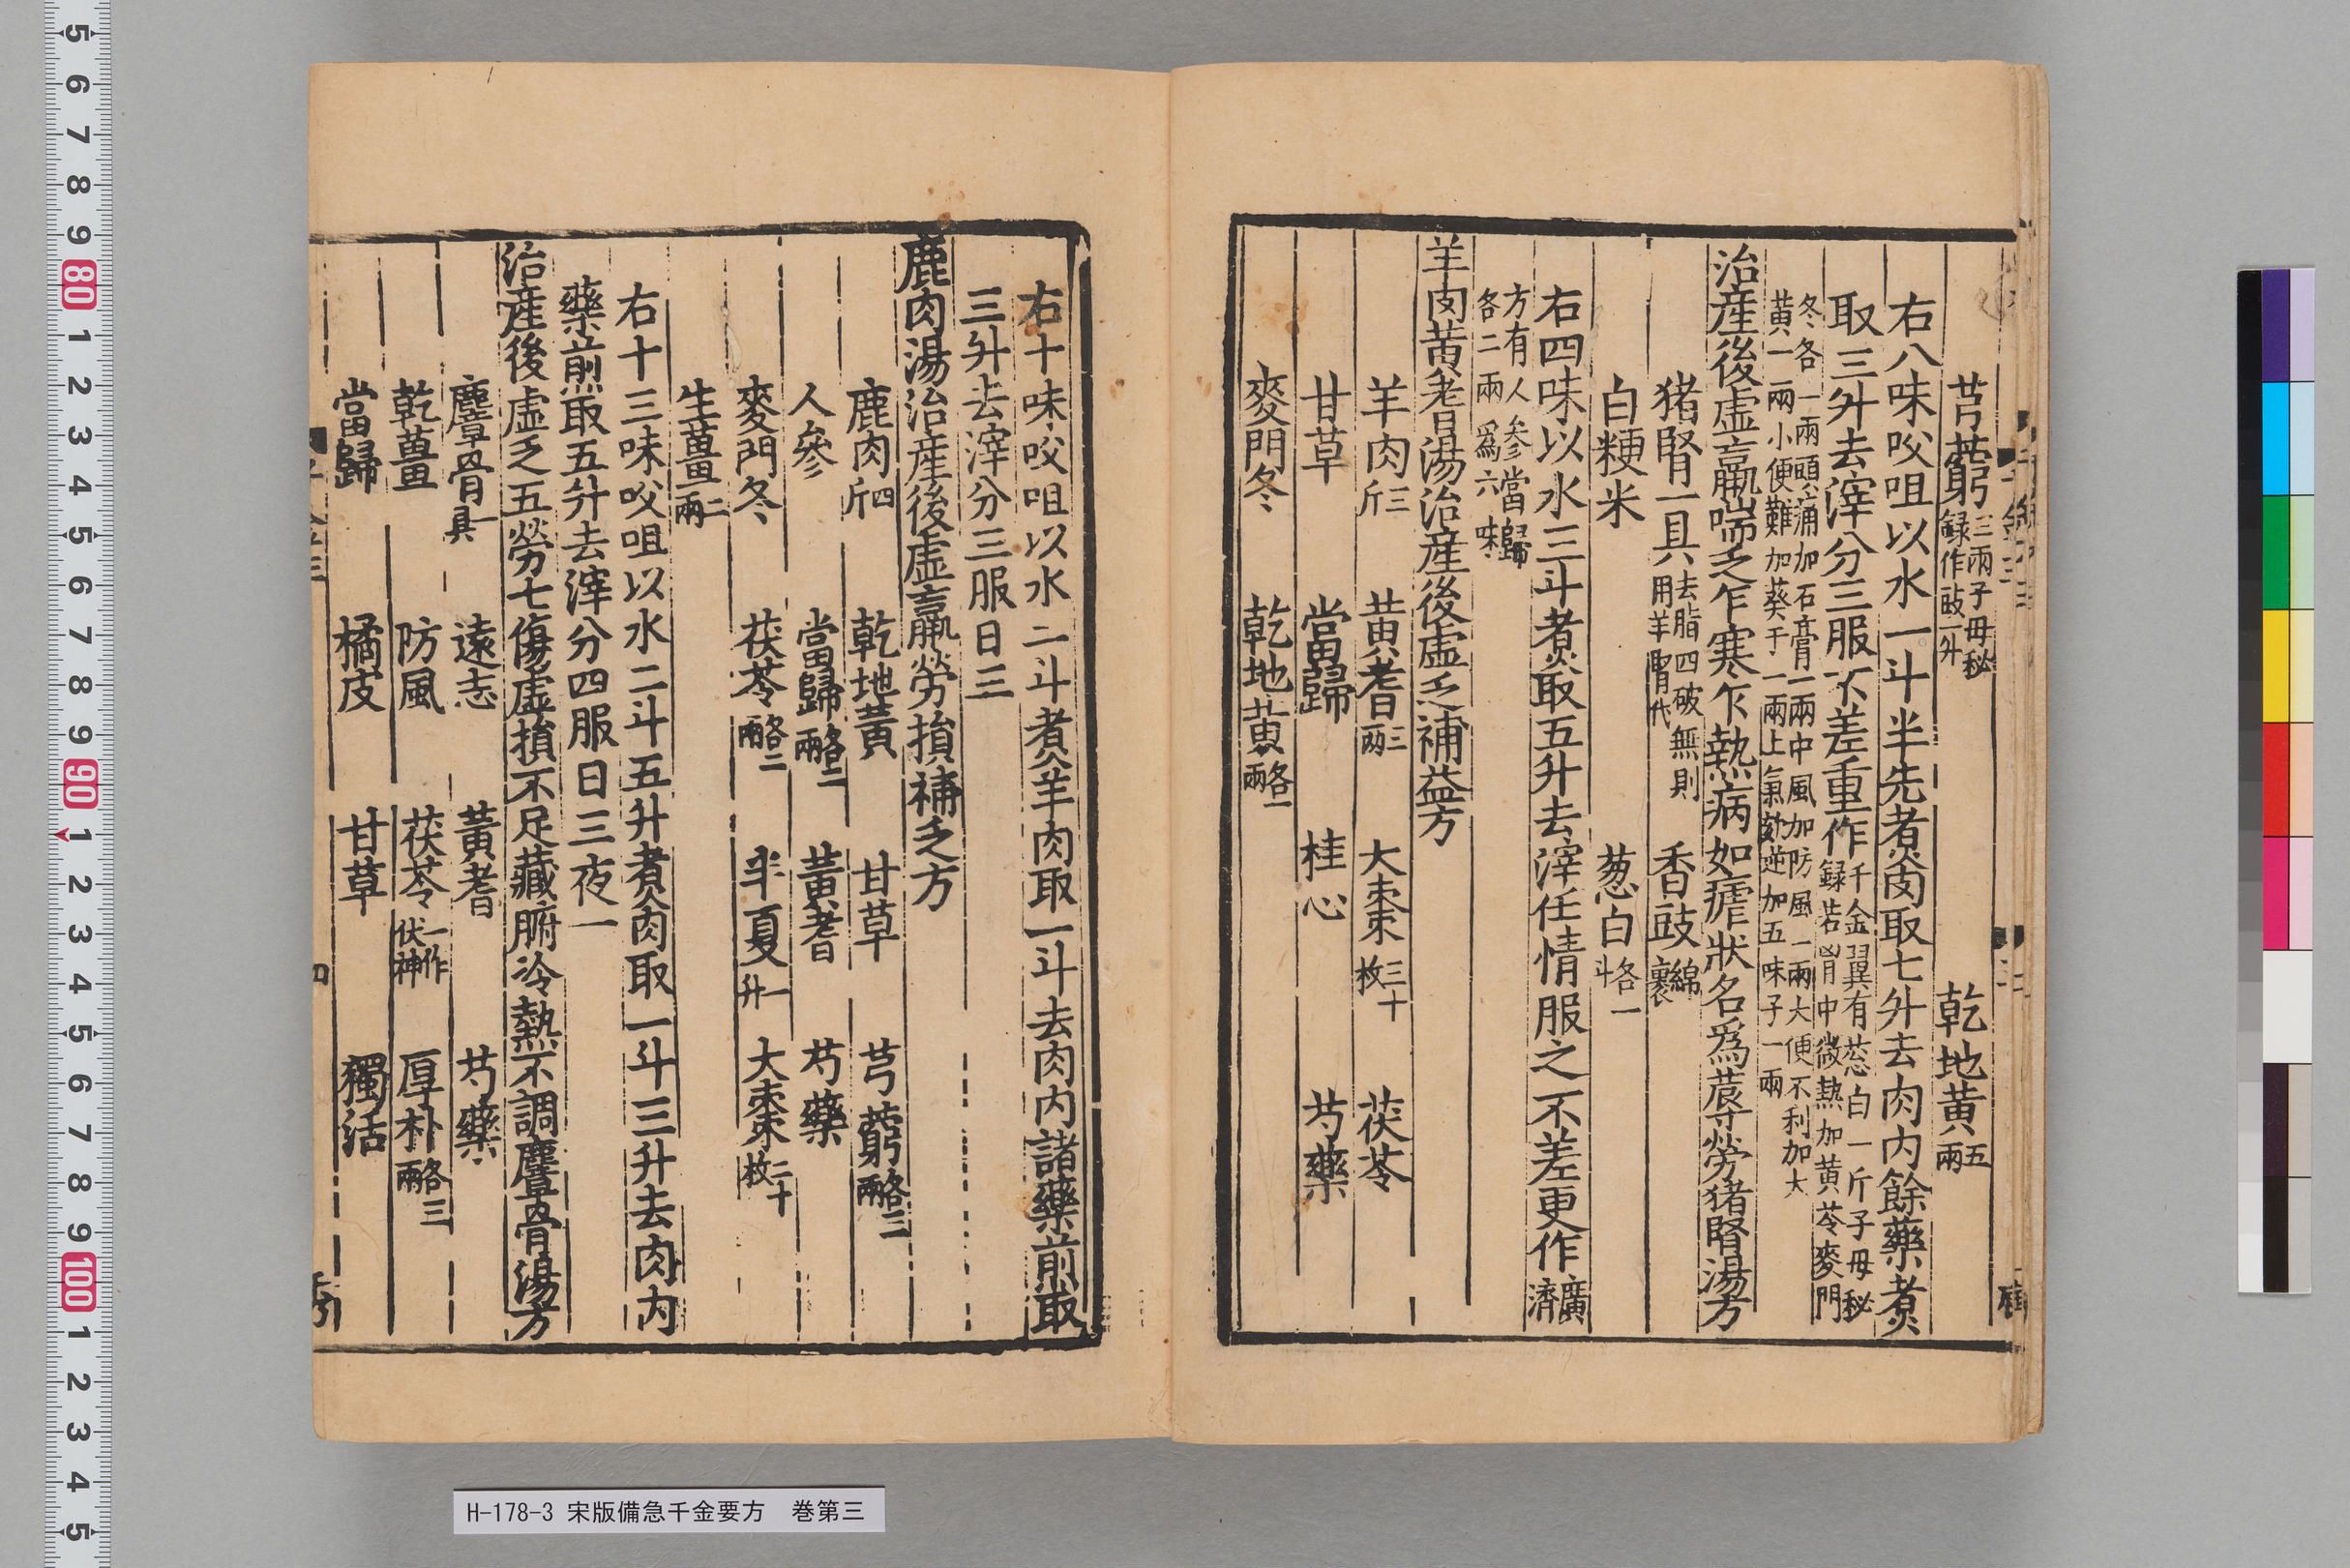 芎藭三兩子母秘録作豉一升 乾地黄五兩
右八味㕮咀以水一斗半先煮肉取七升去肉内餘藥煮
取三升去滓分三服不差重作千金翼有葱白一斤子母秘録若胷中微熱加黄芩麥門
冬各一兩頭痛加石膏一兩中風加防風一兩大便不利加大黄一兩小便難加葵子一兩上氣欬逆加五味子一兩
治産後虚羸喘乏乍寒乍熱病如瘧狀名爲蓐勞猪腎湯方
猪腎一具去脂四破無則用羊腎代 香豉綿裹
白粳米 葱白各一斗
右四味以水三斗煮取五升去滓任情服之不差更作廣濟
方有人參當歸各二兩爲六味
羊肉黄耆湯治産後虚乏補益方
羊肉三斤 黄耆三兩 大棗三十枚 茯苓
甘草 當歸 桂心 芍藥
麥門冬 乾地黄各一兩
右十味㕮咀以水二斗煮羊肉取一斗去肉内諸藥煎取
三升去滓分三服日三
鹿肉湯治産後虚羸勞損補乏方
鹿肉四斤 乾地黄 甘草 芎藭各三兩
人參 當歸各二兩 黄耆 芍藥
麥門冬 茯苓各二兩 半夏一升 大棗二十枚
生薑二兩
右十三味㕮咀以水二斗五升煮肉取一斗三升去肉内
藥煎取五升去滓分四服日三夜一
治産後虚乏五勞七傷虚損不足藏腑冷熱不調麞骨湯方
麞骨一具 遠志 黄耆 芍藥
乾薑 防風 茯苓一作伏神 厚朴各三兩
當歸 橘皮 甘草 獨活
H-178-3 宋版備急千金要方 巻第三
5 6 7 8 9 80 1 2 3 4 5 6 7 8 9 90 1 2 3 4 5 6 7 8 9 100 1 2 3 4 5